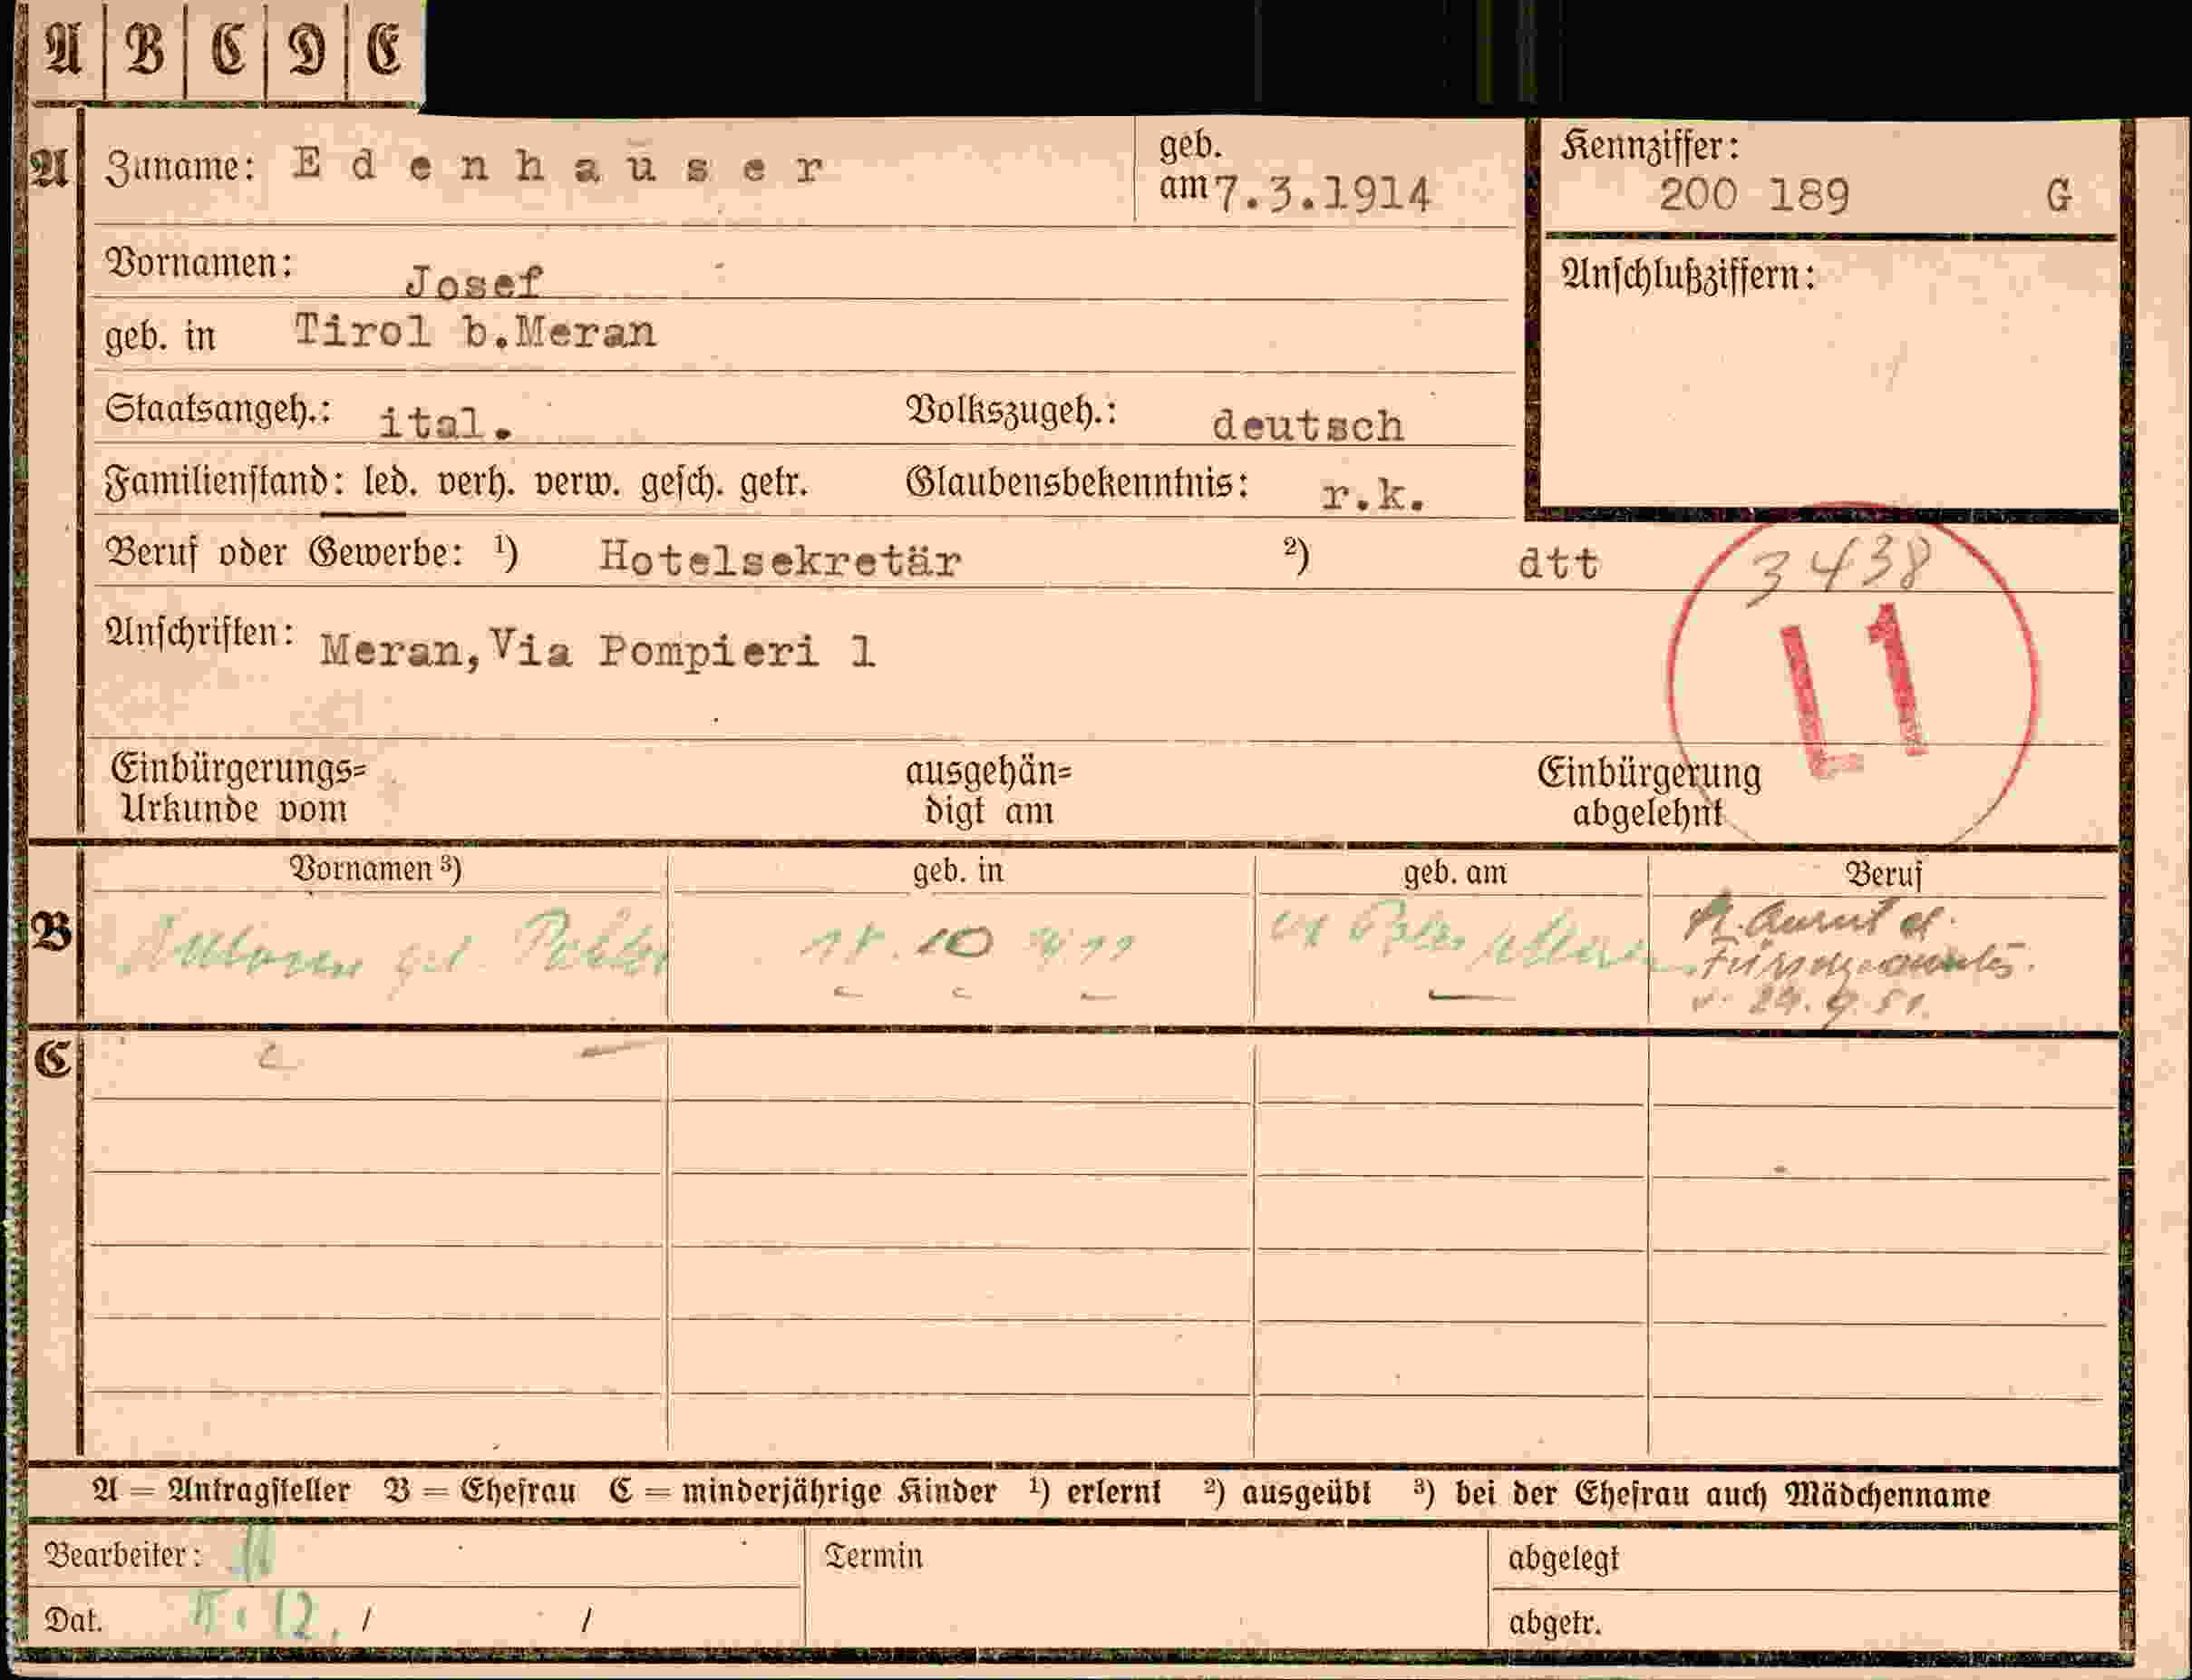 A B C D E
A Zuname: Edenhauser geb. am 7.3.1914 Kennziffer: 200 189 G
Vornamen: Josef Anschlußziffern:
geb. in Tirol b.Meran
Staatsangeh.: ital. Volkszugeh.: deutsch
Familienstand: led. verh. verw. gesch. getr. Glaubensbekenntnis: r.k.
Beruf oder Gewerbe: ¹) Hotelsekretär ²) dtt 3438
Anschriften: Meran,Via Pompieri 1 L1
Einbürgerungs= ausgehän= Einbürgerung
Urkunde vom digt am abgelehnt
Vornamen ³) geb. in geb. am Beruf
B 18. 10
v. 24.9.51.
C
A = Antragsteller B = Ehefrau C = minderjährige Kinder ¹) erlernt ²) ausgeübt ³) bei der Ehefrau auch Mädchenname
Bearbeiter: Termin abgelegt
Dat. / / abgetr.